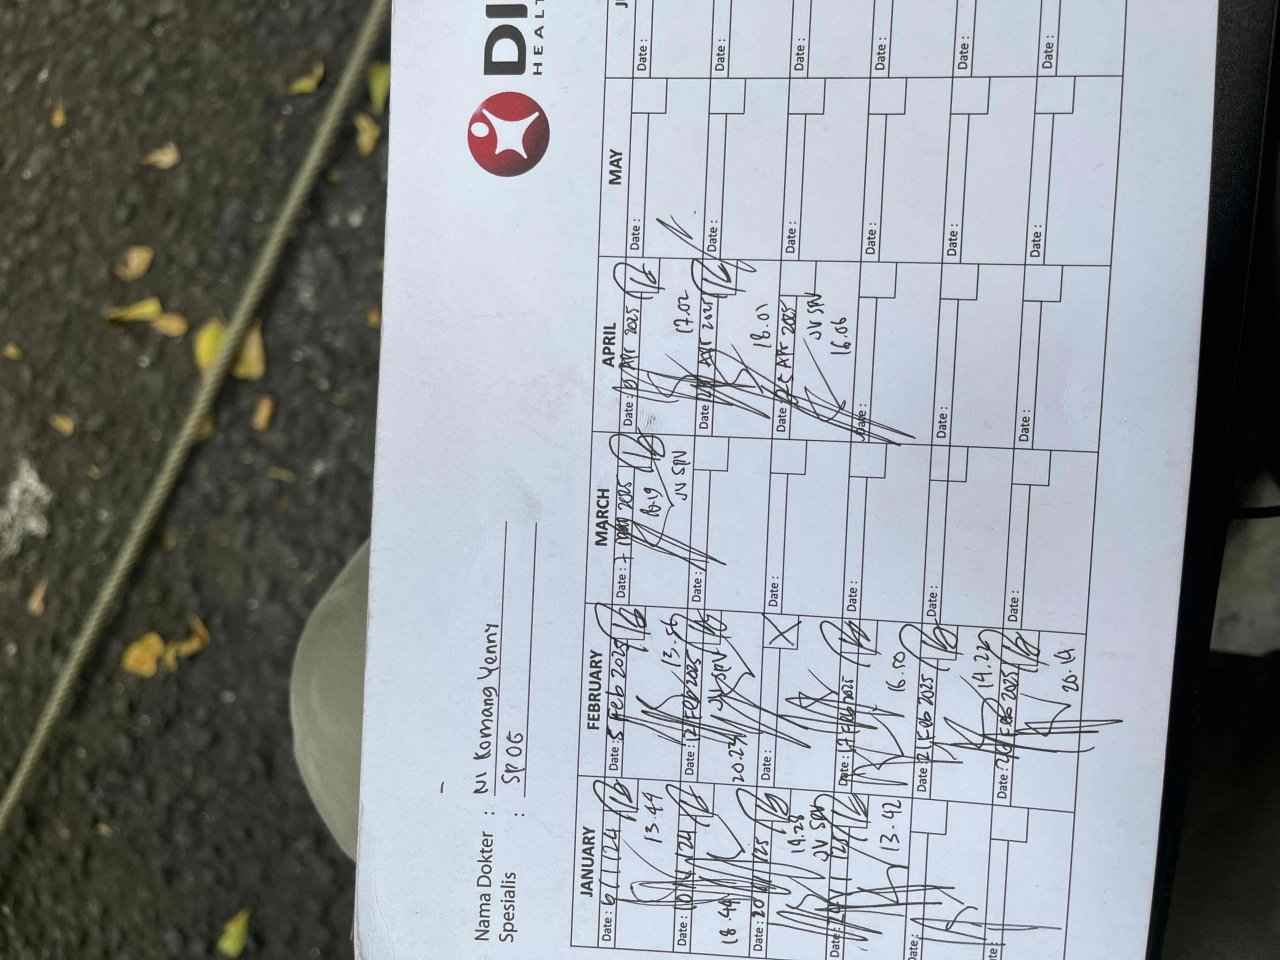 DI
HEALT
Nama Dokter : NI Komang Yenny
Spesialis : Sp OG
JANUARY FEBRUARY MARCH APRIL MAY J
Date : 6/1/24
13.44
Date : 5 Feb 2025
13.56
Date : 7 2025
JV SPV
Date : 10 Apr 2025
17.02
Date :
Date :
Date : 10/1/24
18.44
Date : 12 Feb 2025
JV SPV
20.23
Date :
Date : Apr 2025
18.01
Date :
Date :
Date : 20/1/25
14.28
JV SPV
Date :
Date :
Date : 25 Apr 2025
JV SPV
16.06
Date :
Date :
Date : 24/1/25
13.42
Date : 17 Feb 2025
16.50
Date :
Date :
Date :
Date :
Date :
Date : 21 Feb 2025
14.22
Date :
Date :
Date :
Date :
Date : Feb 2025
20.19
Date :
Date :
Date :
Date :